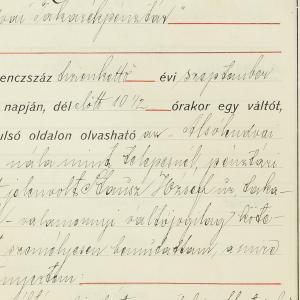 vai Takarékpénztár"
enczszáz tizenkettő évi szeptember
napján, dél előtt 10 1/2 órakor egy váltót,
ulsó oldalon olvasható az Alsólendvai
nála mint telepesnél, pénztári
jelenvolt Klausz József úr taka-
valamennyi váltójogilag köte-
személyesen bemutattam, s mire
nyertem: